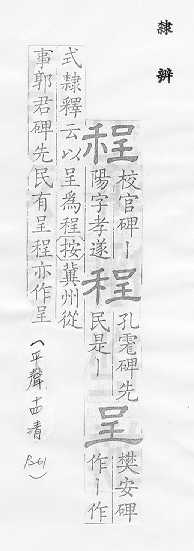 隸辨
程校官碑丨
陽字孝遂
程孔碑先
民是丨
呈樊安碑
作丨作
式隸釋云以呈為程按冀州從
事郭君碑先民有呈程亦作呈
(平聲十四清 B61)